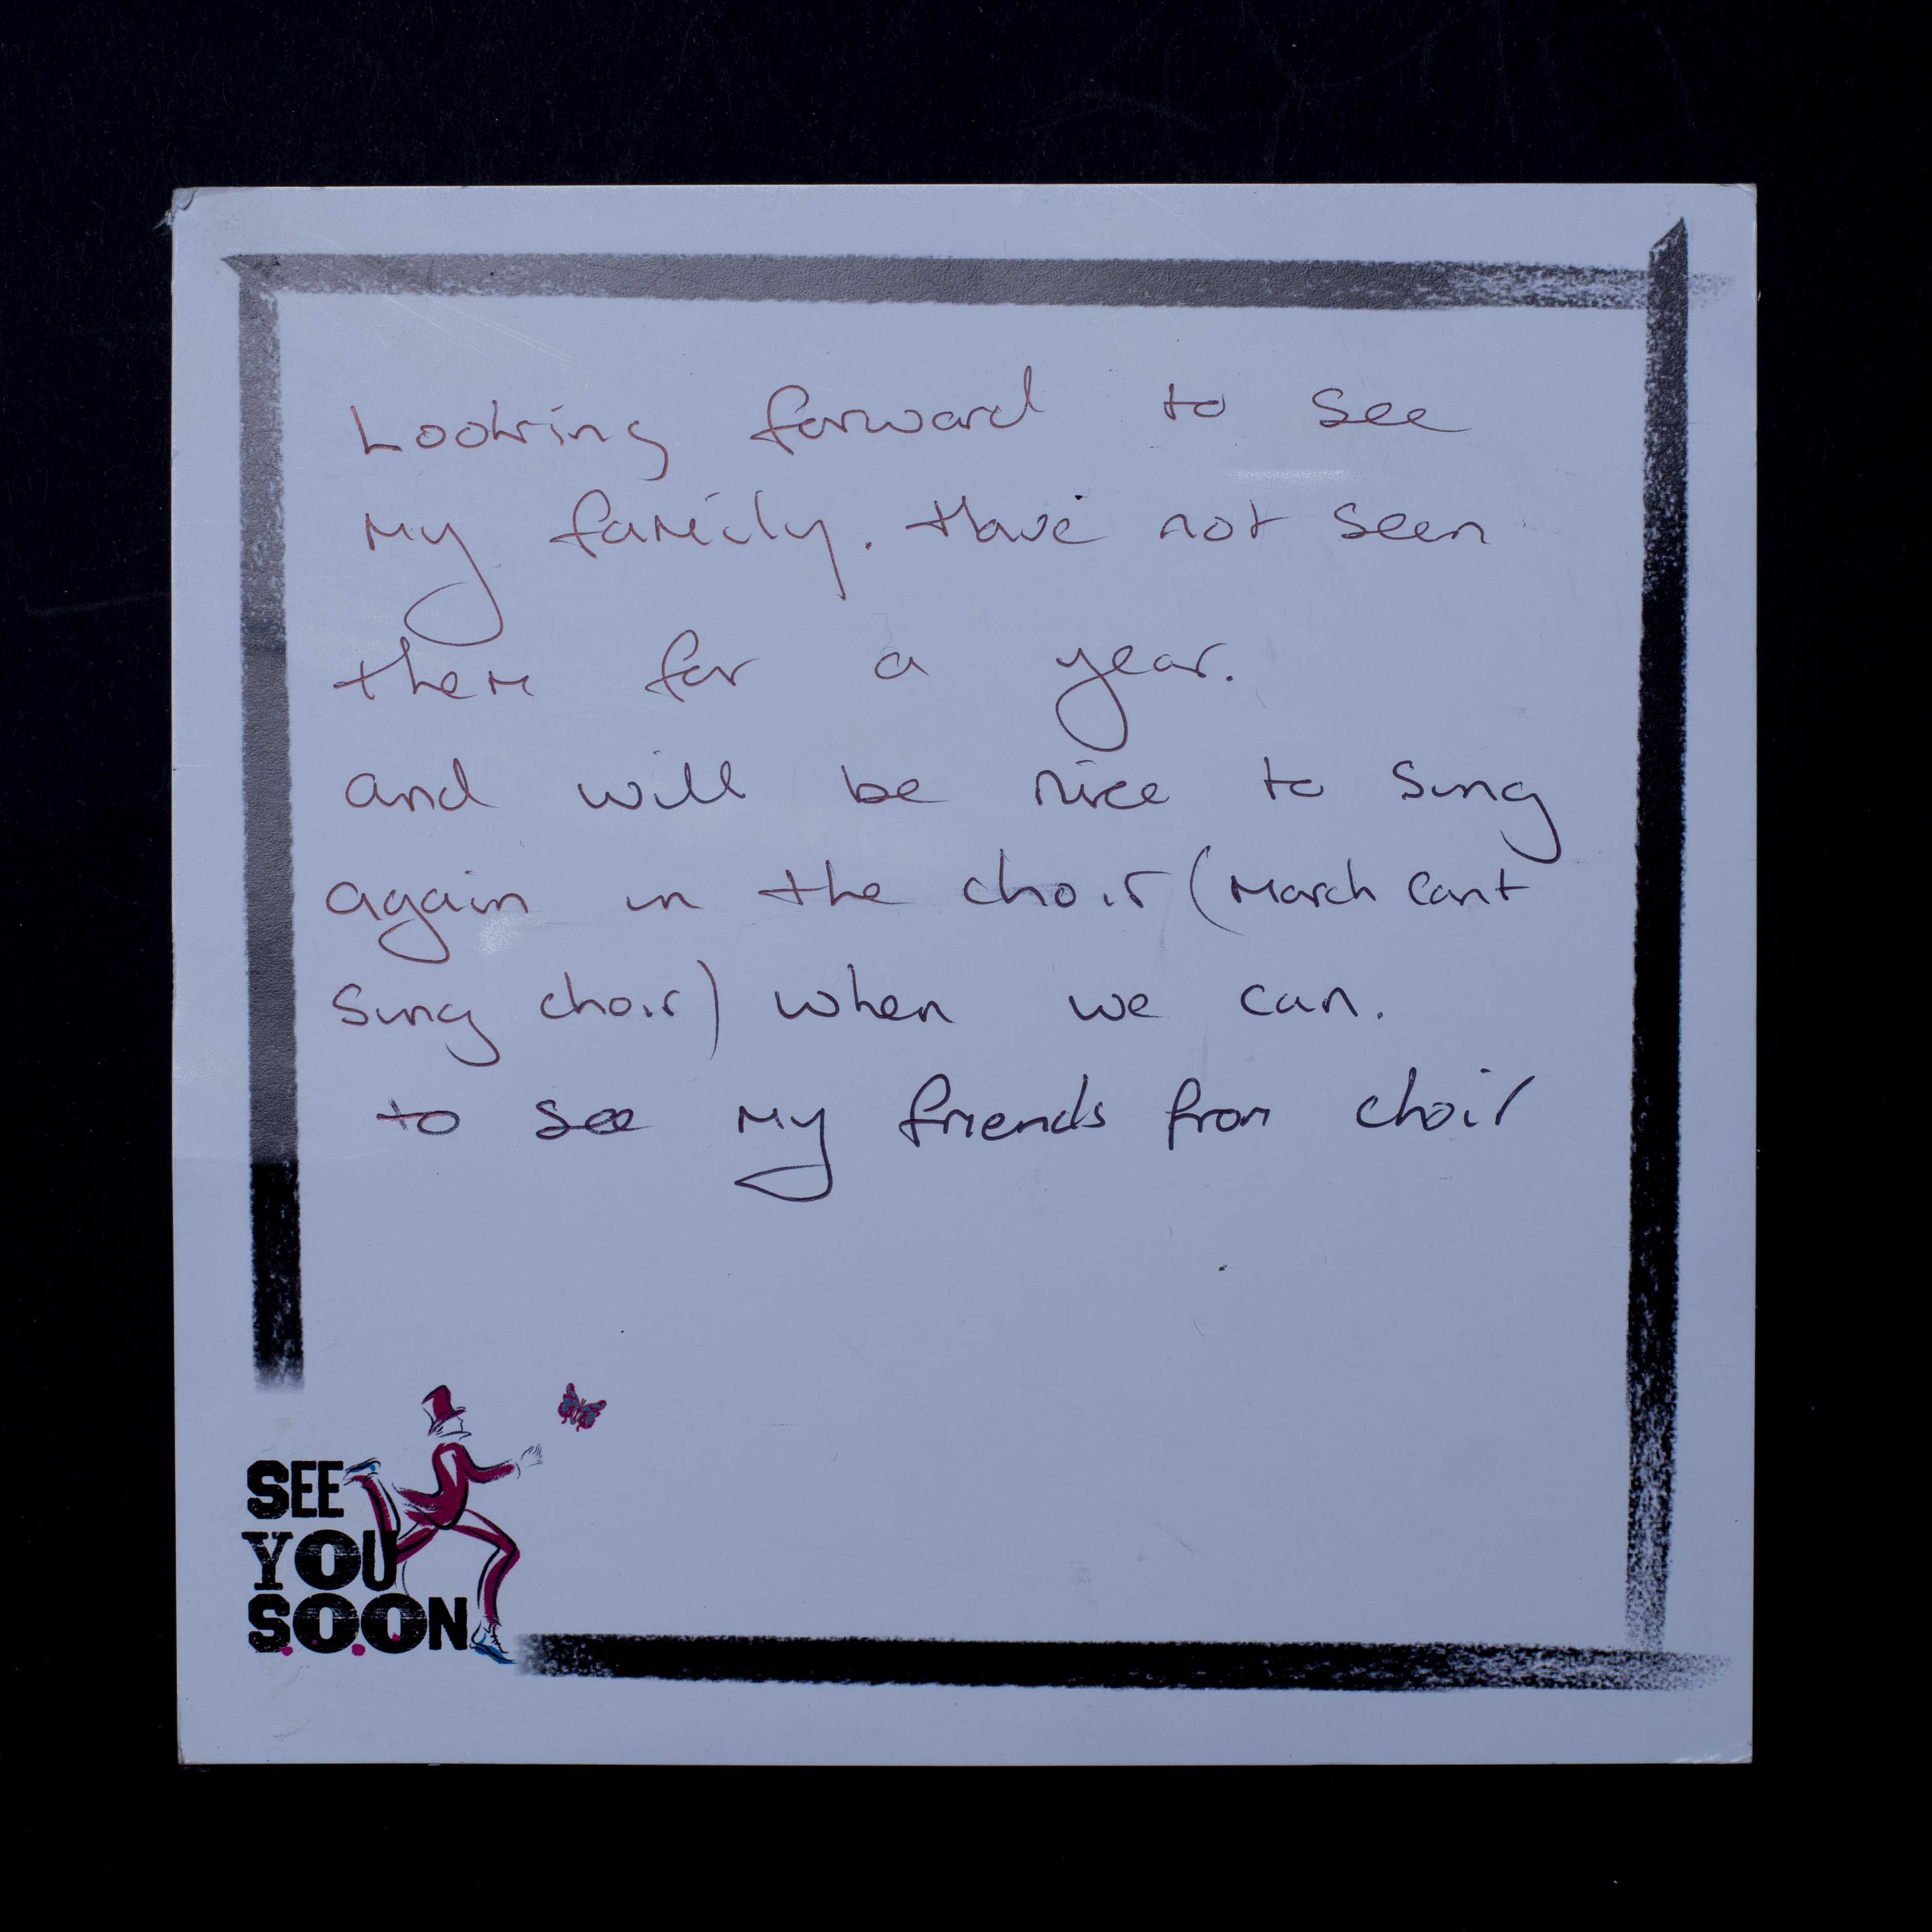 Looking forward to see
my family. Have not seen
them for a year.
and will be nice to sing
again in the choir (March cant
sing choir) when we can.
to see my friends from choir
SEE
YOU
SOON